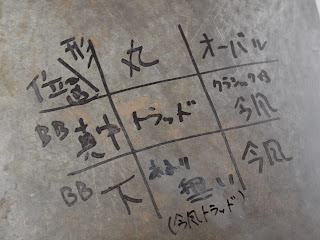 形 丸 オーバル
位置
BB 真中 トラッド クラシック
今風
BB 下 あまり 今風
無い
(今風トラッド)